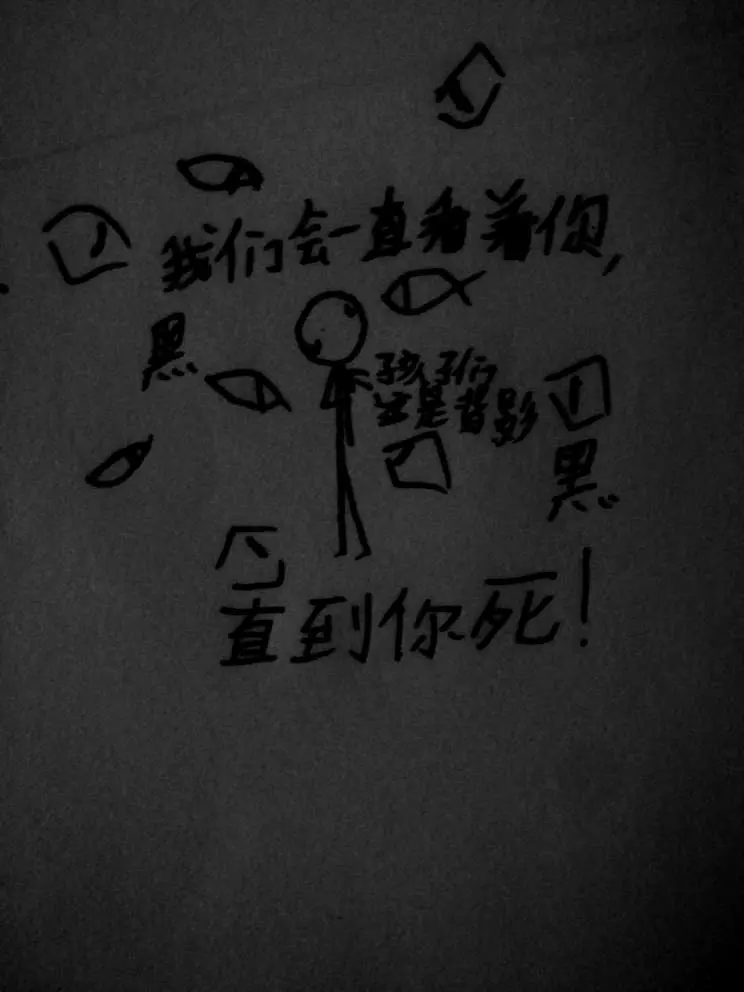 我们会一直看着你,
黑
孩子们
这是背影
黑
直到你死!